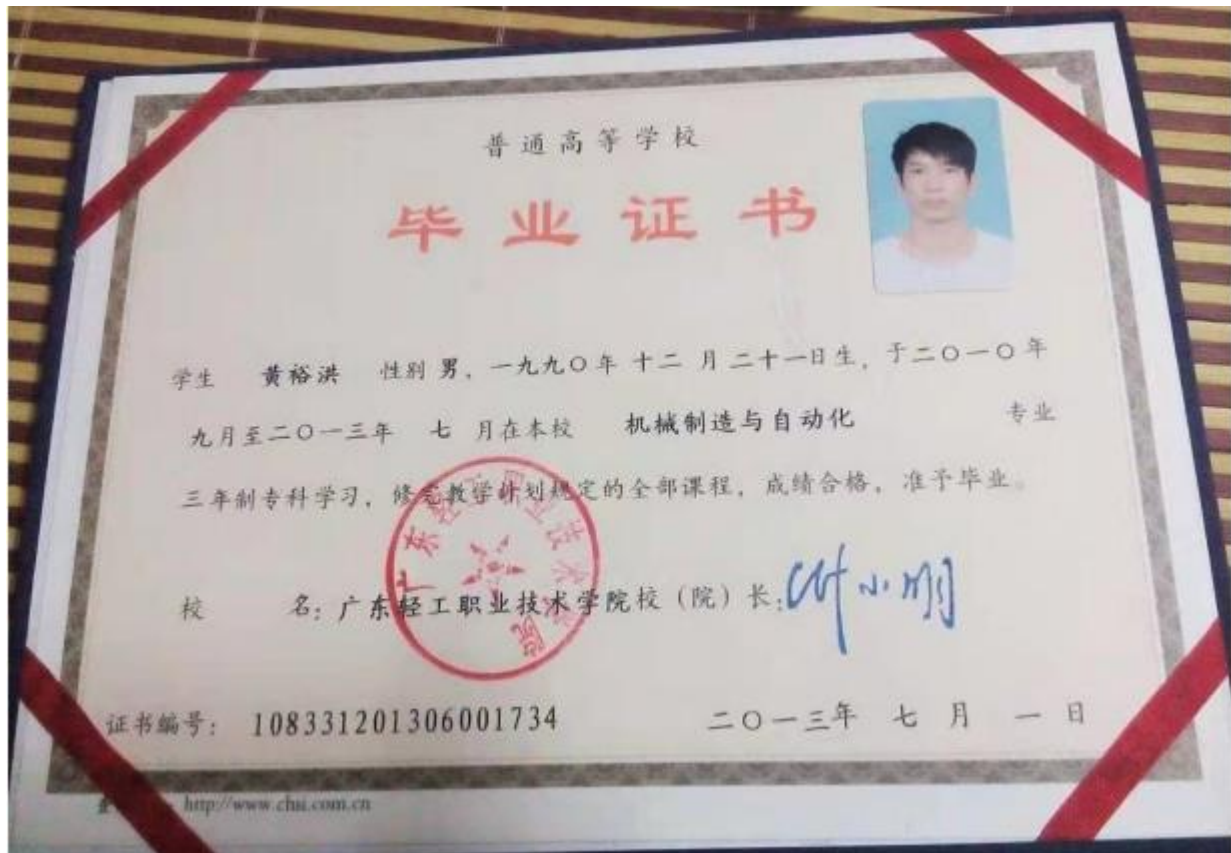 普通高等学校
毕业证书
学生 黄裕洪 性别 男，一九九〇年 十二 月 二十一日生，于二〇一〇年
九月至二〇一三年 七 月在本校 机械制造与自动化 专业
三年制专科学习，修完教学计划规定的全部课程，成绩合格，准予毕业。
校 名：广东轻工职业技术学院校（院）长：
广东轻工职业技术学院
证书编号：108331201306001734 二〇一三年 七 月 一 日
http://www.chsi.com.cn